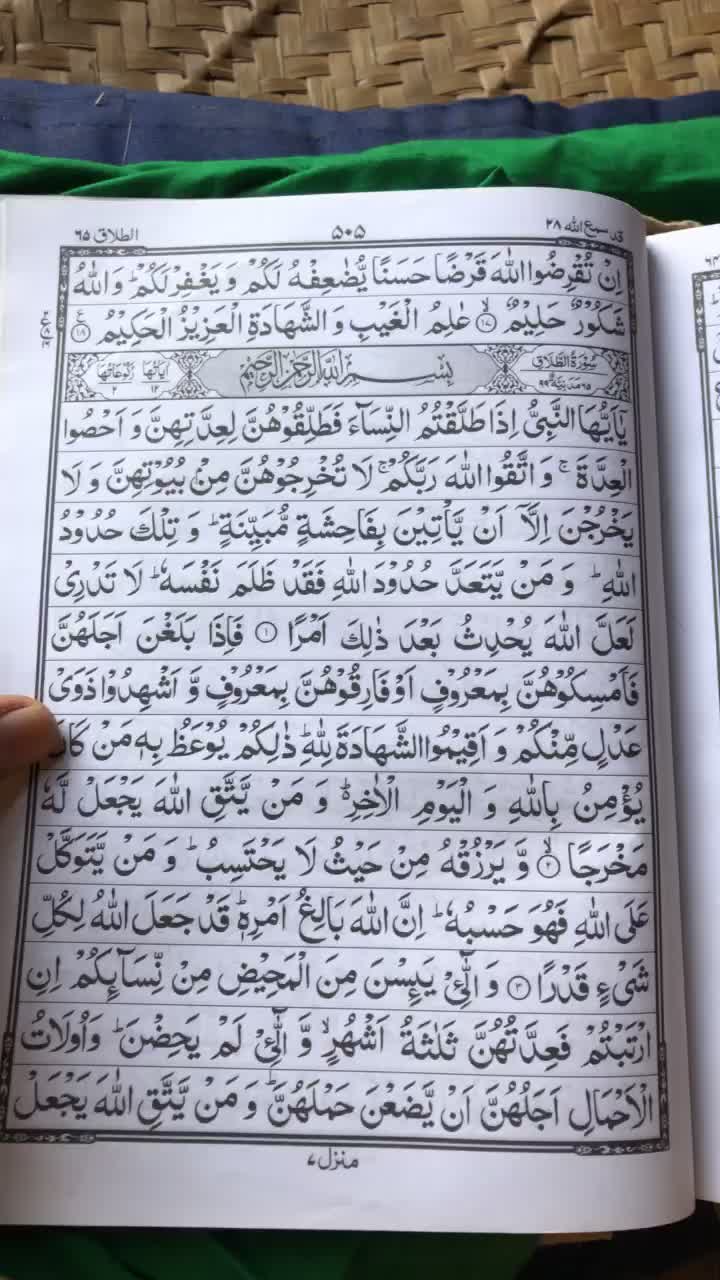 قد سمع الله ٢٨ ٥٠٥ الطلاق ٦٥
اِنۡ تُقۡرِضُوا اللّٰهَ قَرۡضًا حَسَنًا يُّضٰعِفۡهُ لَكُمۡ وَ يَغۡفِرۡ لَكُمۡ‌ؕ وَ اللّٰهُ
شَكُوۡرٌ حَلِيۡمٌۙ‏ ﴿۱۷﴾ عٰلِمُ الۡغَيۡبِ وَ الشَّهَادَةِ الۡعَزِيۡزُ الۡحَكِيۡمُ‏ ﴿۱۸﴾
سُوۡرَةُ الطَّلَاقِ بِسۡمِ اللّٰهِ الرَّحۡمٰنِ الرَّحِيۡمِ اٰيَاتُهَا ١٢ رُكُوۡعَاتُهَا ٢
يٰۤاَيُّهَا النَّبِىُّ اِذَا طَلَّقۡتُمُ النِّسَآءَ فَطَلِّقُوۡهُنَّ لِعِدَّتِهِنَّ وَ اَحۡصُوا
الۡعِدَّةَ‌ ۚ وَ اتَّقُوا اللّٰهَ رَبَّكُمۡ‌ ۚ لَا تُخۡرِجُوۡهُنَّ مِنۡۢ بُيُوۡتِهِنَّ وَ لَا
يَخۡرُجۡنَ اِلَّاۤ اَنۡ يَّاۡتِيۡنَ بِفَاحِشَةٍ مُّبَيِّنَةٍ‌ ؕ وَ تِلۡكَ حُدُوۡدُ
اللّٰهِ‌ ؕ وَ مَنۡ يَّتَعَدَّ حُدُوۡدَ اللّٰهِ فَقَدۡ ظَلَمَ نَفۡسَهٗ‌ ؕ لَا تَدۡرِىۡ
لَعَلَّ اللّٰهَ يُحۡدِثُ بَعۡدَ ذٰ لِكَ اَمۡرًا‏ ﴿۱﴾ فَاِذَا بَلَغۡنَ اَجَلَهُنَّ
فَاَمۡسِكُوۡهُنَّ بِمَعۡرُوۡفٍ اَوۡ فَارِقُوۡهُنَّ بِمَعۡرُوۡفٍ وَّ اَشۡهِدُوۡا ذَوَىۡ
عَدۡلٍ مِّنۡكُمۡ وَ اَقِيۡمُوا الشَّهَادَةَ لِلّٰهِ‌ ؕ ذٰ لِكُمۡ يُوۡعَظُ بِهٖ مَنۡ كَانَ
يُؤۡمِنُ بِاللّٰهِ وَ الۡيَوۡمِ الۡاٰخِرِ‌ ؕ وَ مَنۡ يَّتَّقِ اللّٰهَ يَجۡعَلْ لَّهٗ
مَخۡرَجًا ۙ‏ ﴿۲﴾ وَّ يَرۡزُقۡهُ مِنۡ حَيۡثُ لَا يَحۡتَسِبُ‌ ؕ وَ مَنۡ يَّتَوَكَّلۡ
عَلَى اللّٰهِ فَهُوَ حَسۡبُهٗ ؕ اِنَّ اللّٰهَ بَالِغُ اَمۡرِهٖ‌ ؕ قَدۡ جَعَلَ اللّٰهُ لِكُلِّ
شَىۡءٍ قَدۡرًا‏ ﴿۳﴾ وَ الّٰٓـىِٴۡ يَٮِٕسۡنَ مِنَ الۡمَحِيۡضِ مِنۡ نِّسَآٮِٕكُمۡ اِنِ
ارۡتَبۡتُمۡ فَعِدَّتُهُنَّ ثَلٰثَةُ اَشۡهُرٍۙ وَّ الّٰٓـىِٴۡ لَمۡ يَحِضۡنَ‌ ؕ وَ اُولَاتُ
الۡاَحۡمَالِ اَجَلُهُنَّ اَنۡ يَّضَعۡنَ حَمۡلَهُنَّ ‌ؕ وَ مَنۡ يَّتَّقِ اللّٰهَ يَجۡعَلْ
منزل ٧